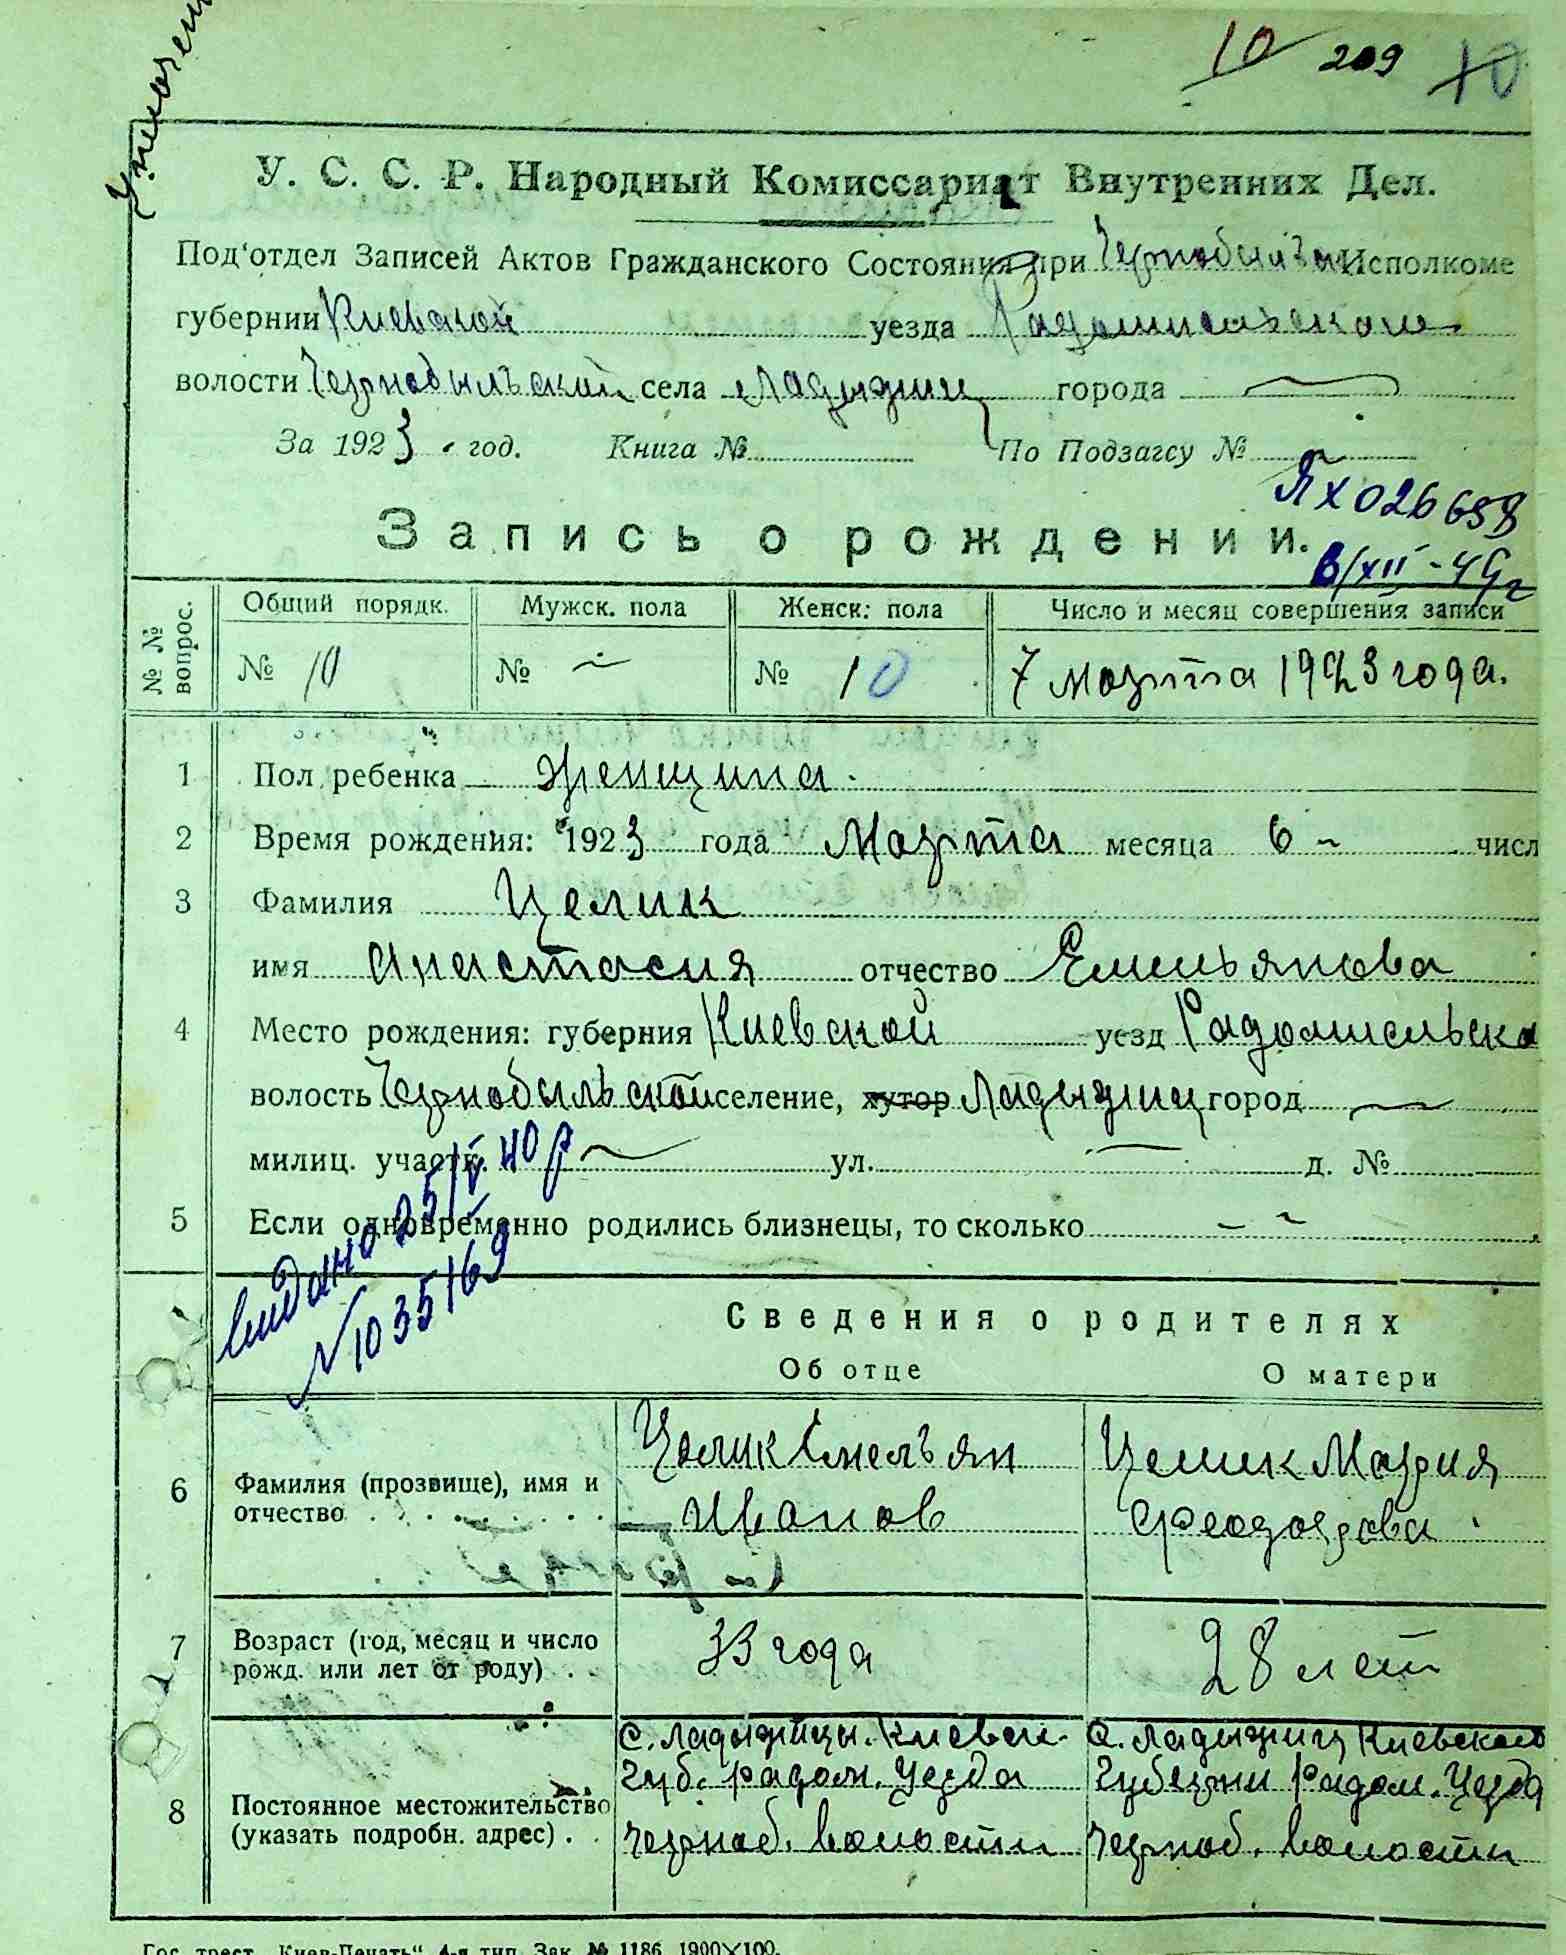 10 209 10
У. С. С. Р. Народный Комиссариат Внутренних Дел.
Под'отдел Записей Актов Гражданского Состояния при Исполкоме
губернии Киевской уезда Радомисльского
волости Чернобыльской села Ладыжич города —
За 1923 год. Книга № По Подзагсу №
ЯХ 026658
Запись о рождении.
6/XII-49г
№ № вопрос. Общий порядк. Мужск. пола Женск. пола Число и месяц совершения записи
№ 10 № — № 10 7 марта 1923 года.
1 Пол ребенка женщина.
2 Время рождения: 1923 года Марта месяца 6 числ
3 Фамилия Целик
имя Анастасия отчество Емельянова
4 Место рождения: губерния Киевской уезд Радомисльска
волость Чернобыльской селение, хутор Ладыжич город —
милиц. участк. — ул. — д. №
5 Если одновременно родились близнецы, то сколько — -
видано 25/V 40 р
№ 1035169
Сведения о родителях
Об отце О матери
6 Фамилия (прозвище), имя и отчество Целик Емельян Иванов Целик Мария Феодорова
7 Возраст (год, месяц и число рожд. или лет от роду) 33 года 28 лет
8 Постоянное местожительство (указать подробн. адрес) с. Ладыжичы. Киевск. губ. Радом. Уезда черноб. волости с. Ладыжич Киевской губернии Радом. Уезда черноб. волости
Гос. трест „Киев-Печать“ 4-я тип. Зак. № 1186 1900×100.